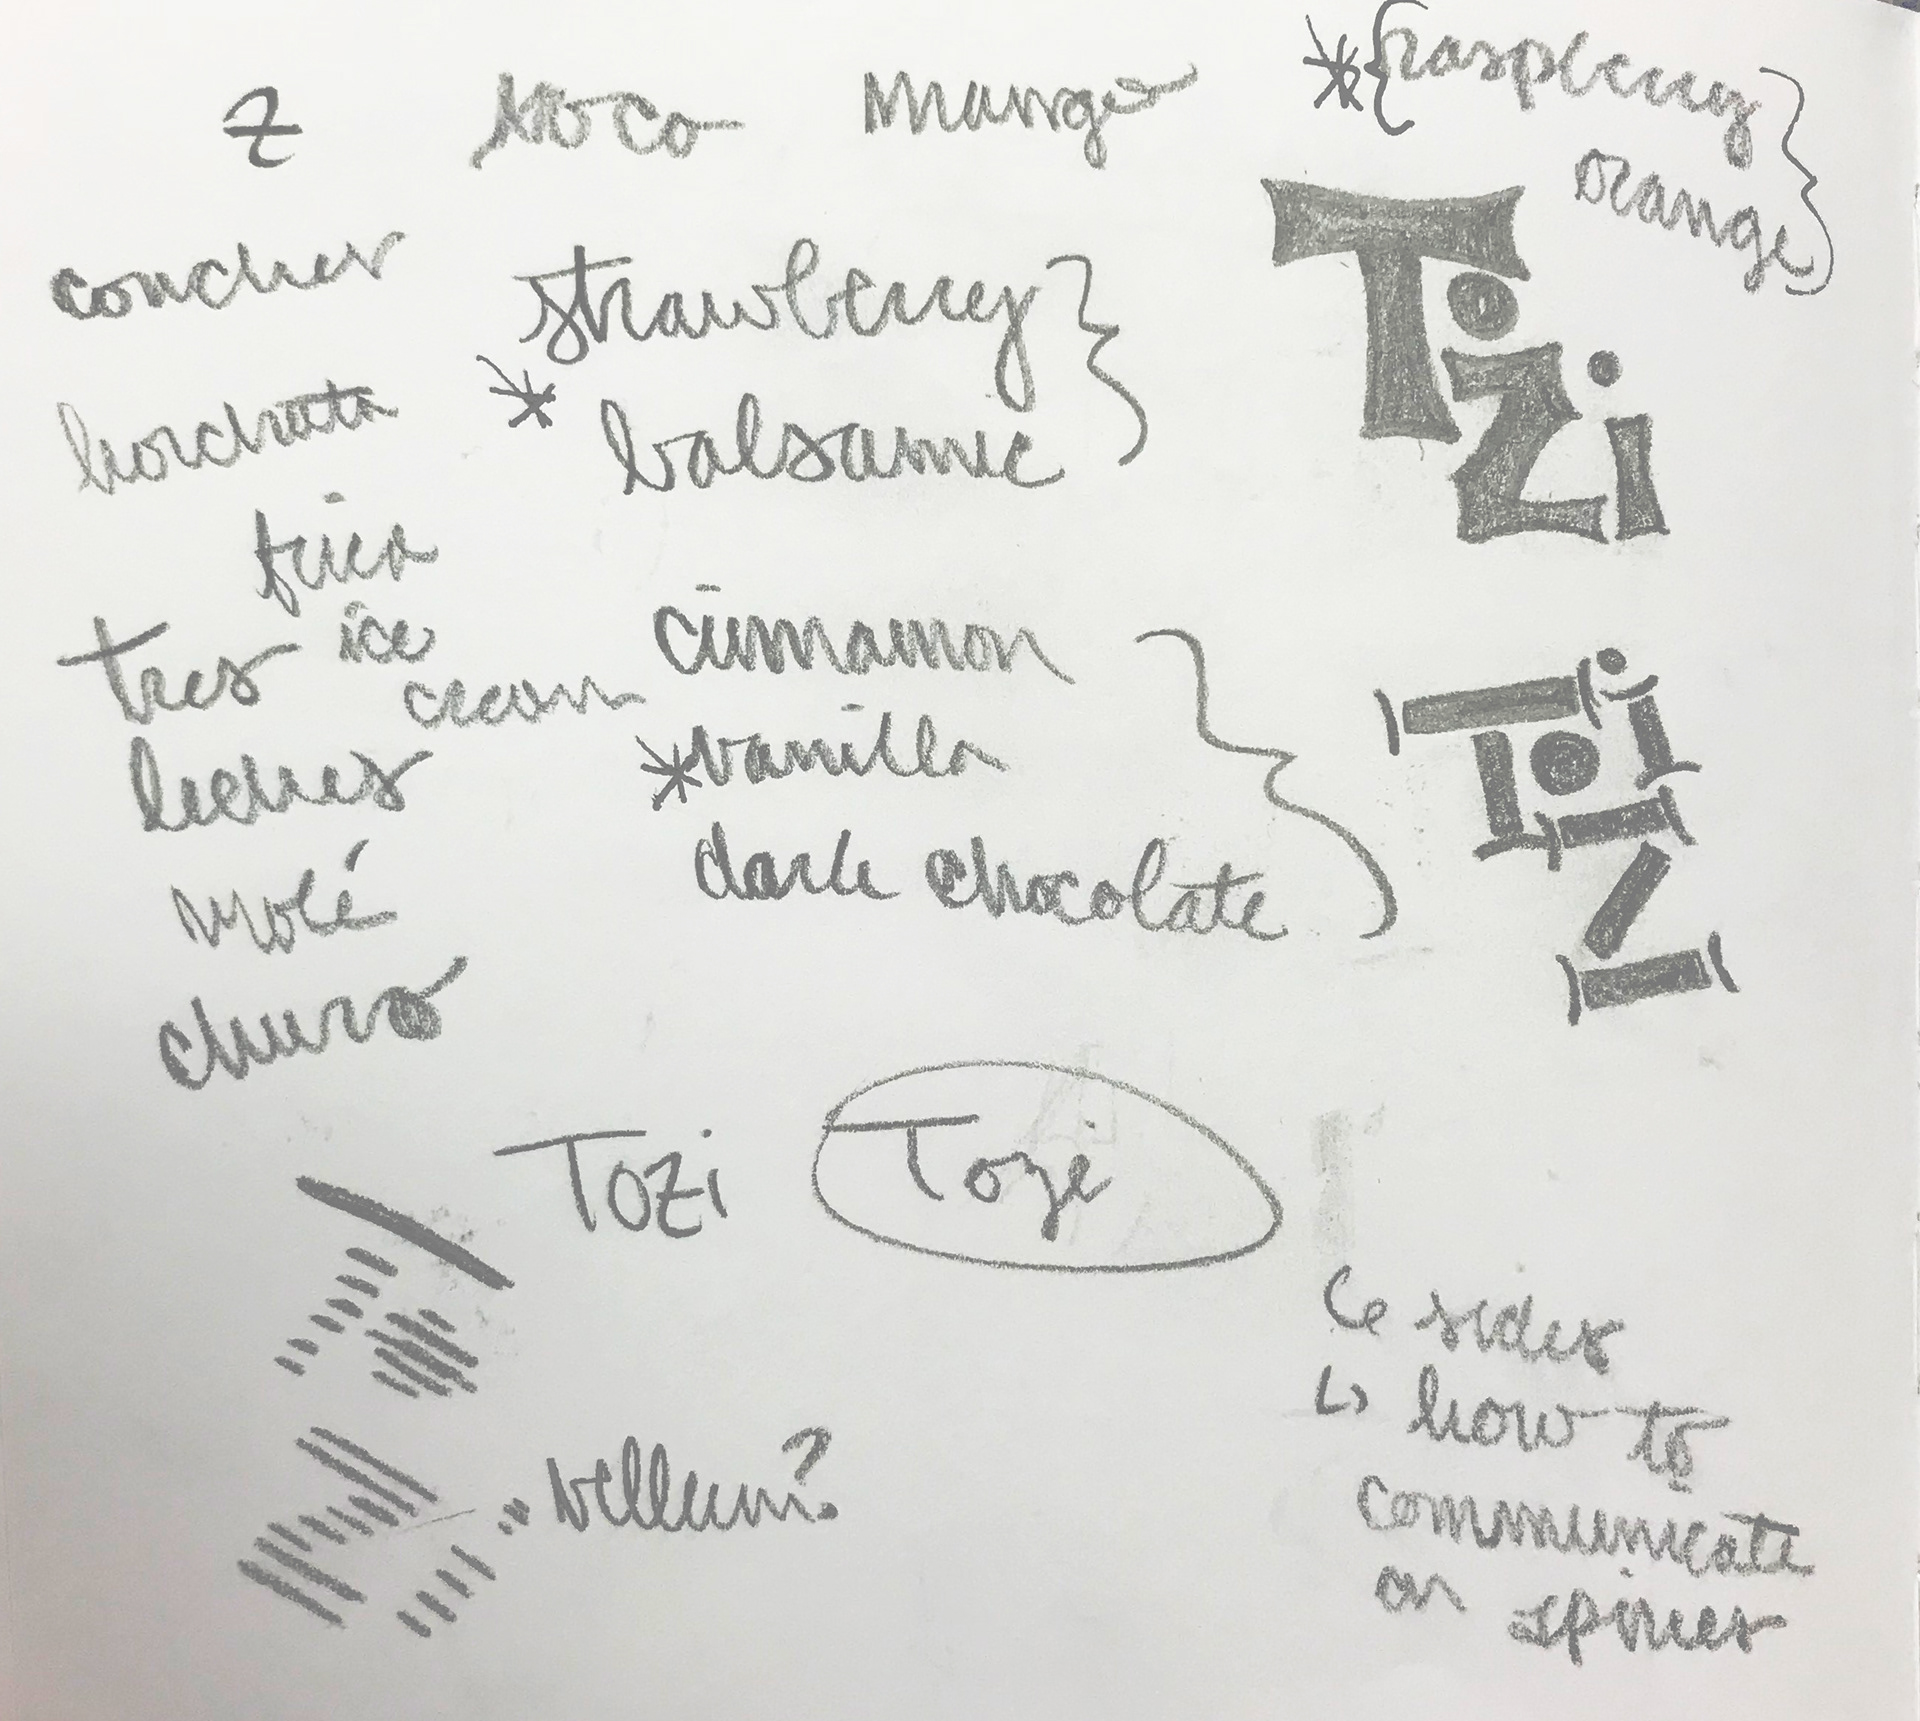 z
mango
*{raspberry
orange}
conches
strawberry
horchata
* balsamic }
ToZi
ice
cream
tres
leches
cinnamon
*vanilla
dark chocolate }
molé
churo
TOZi
TOZi
Tozi
6 sides
↳ how to
communicate
on spines
vellum?